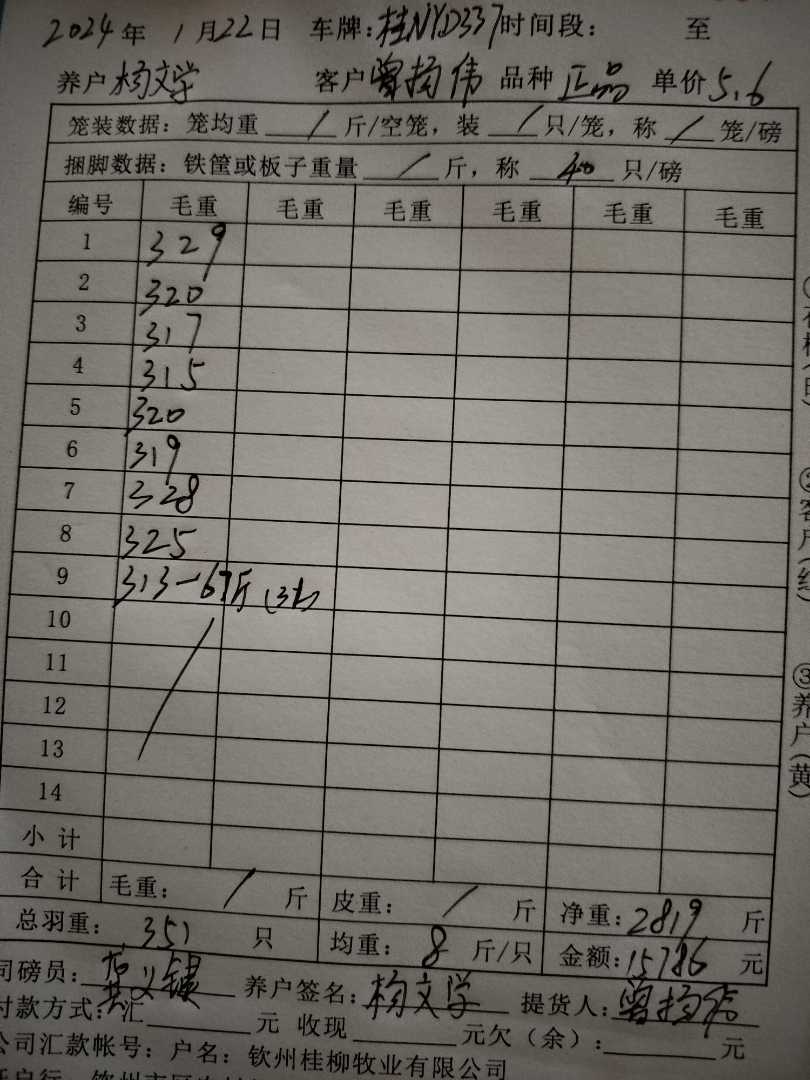 2024年 1月22日 车牌:桂NYD337时间段: 至
养户杨文学 客户曾杨伟 品种 正品 单价5.6
笼装数据:笼均重 / 斤/空笼,装 / 只/笼,称 / 笼/磅
捆脚数据:铁筐或板子重量 / 斤,称 40 只/磅
编号 毛重 毛重 毛重 毛重 毛重 毛重
1 329
2 320
3 317
4 315
5 320
6 319
7 328
8 325
9 313-67斤(31只)
10
11
12
13
14
小计
合计 毛重: / 斤 皮重: / 斤 净重:2819 斤
总羽重: 351 只 均重: 8 斤/只 金额:15786 元
司磅员: 养户签名:杨文学 提货人:曾杨伟
付款方式:汇 元 收现 元欠(余): 元
公司汇款帐号:户名:钦州桂柳牧业有限公司
②客户(红)
③养户(黄)